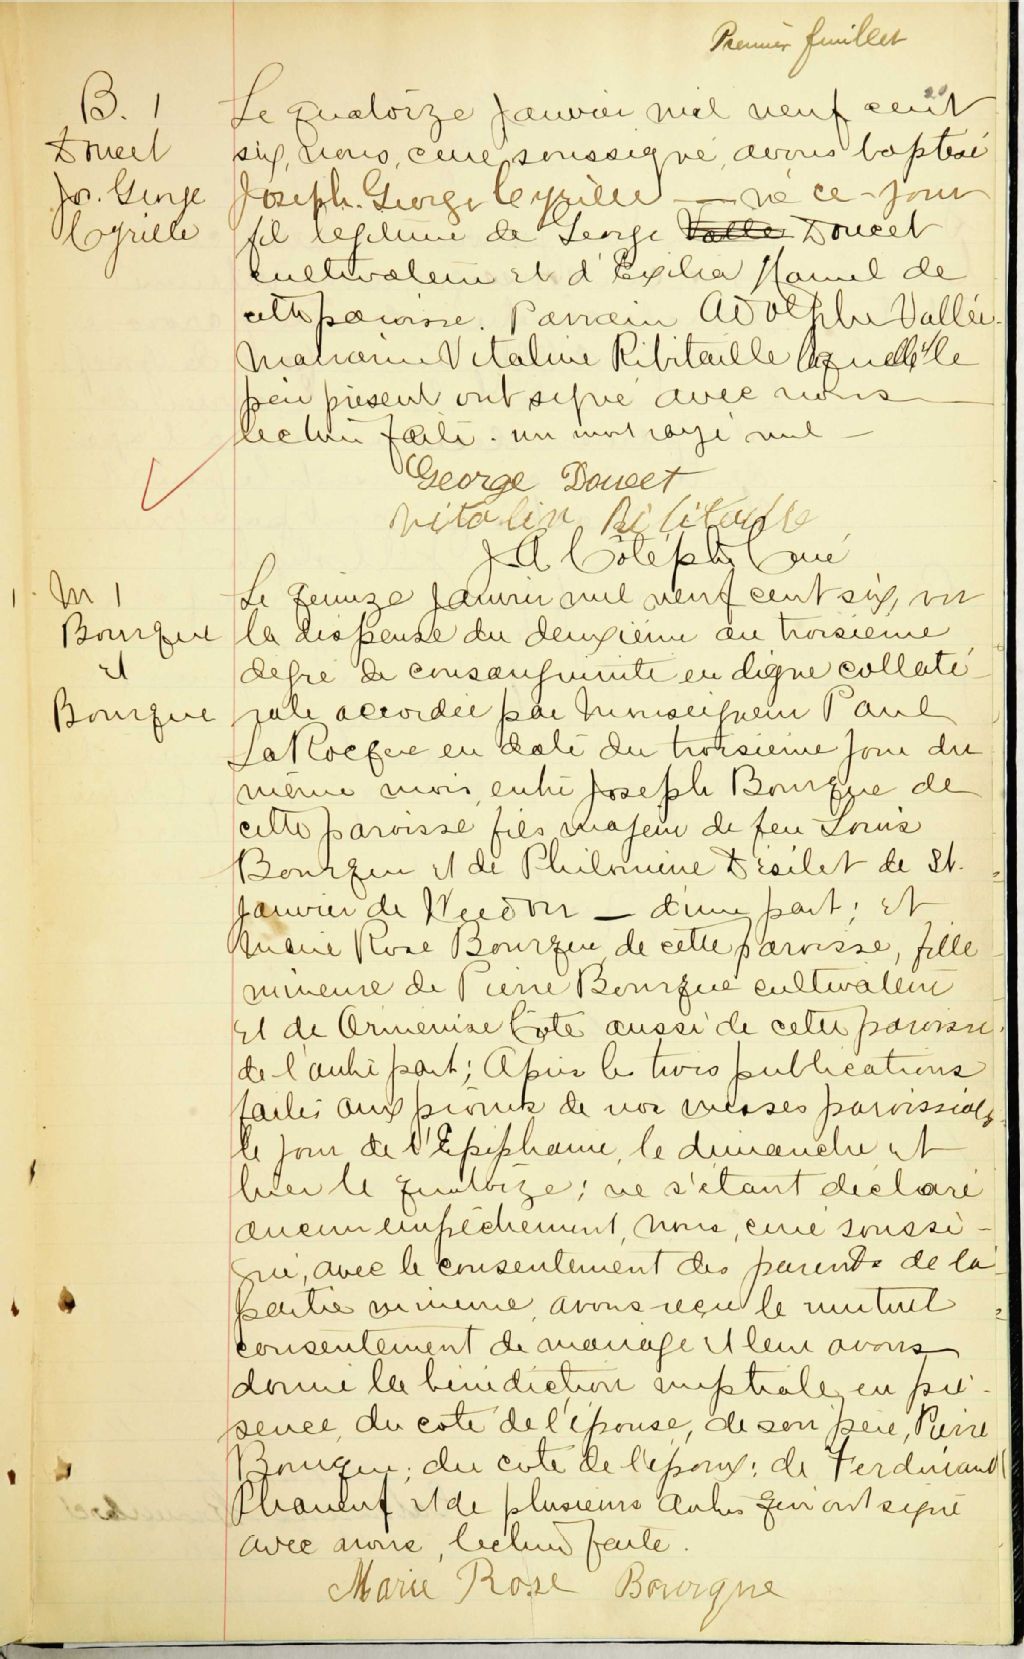 Premier feuillet
B. 1
Doucet
Jos. George
Cyrille
Le quatorze Janvier mil neuf cent
six, nous, curé soussigné, avons baptisé
Joseph. George Cyrille — né ce jour
fil légitime de George Vallé Doucet
cultivateur et d'Exilia Hamel de
cette paroisse. Parrain Adolphe Vallée
Marraine Vitaline Ribitaille laquelle le
père présent ont signé avec nous
lecture faite. un mot rayé nul —
George Doucet
Vitalin Ribitaille
J A Côté ptr Curé
M 1
Bourque
et
Bourque
Le quinze Janvier mil neuf cent six, vu
la dispense du deuxième au troisième
degré de consanguinité en ligne collaté-
rale accordée par Monseigneur Paul
LaRocque en date du troisième jour du
même mois, entre Joseph Bourque de
cette paroisse fils majeur de feu Louis
Bourque et de Philomène Désilet de St.
Janvier de Weedon — d'une part; et
Marie Rose Bourque de cette paroisse, fille
mineure de Pierre Bourque cultivateur
et de Armenise Coté aussi de cette paroisse
de l'autre part; Après les trois publications
faites aux prônes de nos messes paroissiales
le jour de l'Epiphanie, le dimanche et
hier le quatorze; ne s'étant déclaré
aucun empêchement, nous, curé soussi-
gné, avec le consentement des parents de la
partie mineure, avons reçu le mutuel
consentement de mariage et leur avons
donné la bénédiction nuptiale, en pré-
sence, du coté de l'épouse, de son père, Pierre
Bourque; du coté de l'époux: de Ferdinand
et de plusieurs autres qui ont signé
avec nous, lecture faite.
Marie Rose Bourque